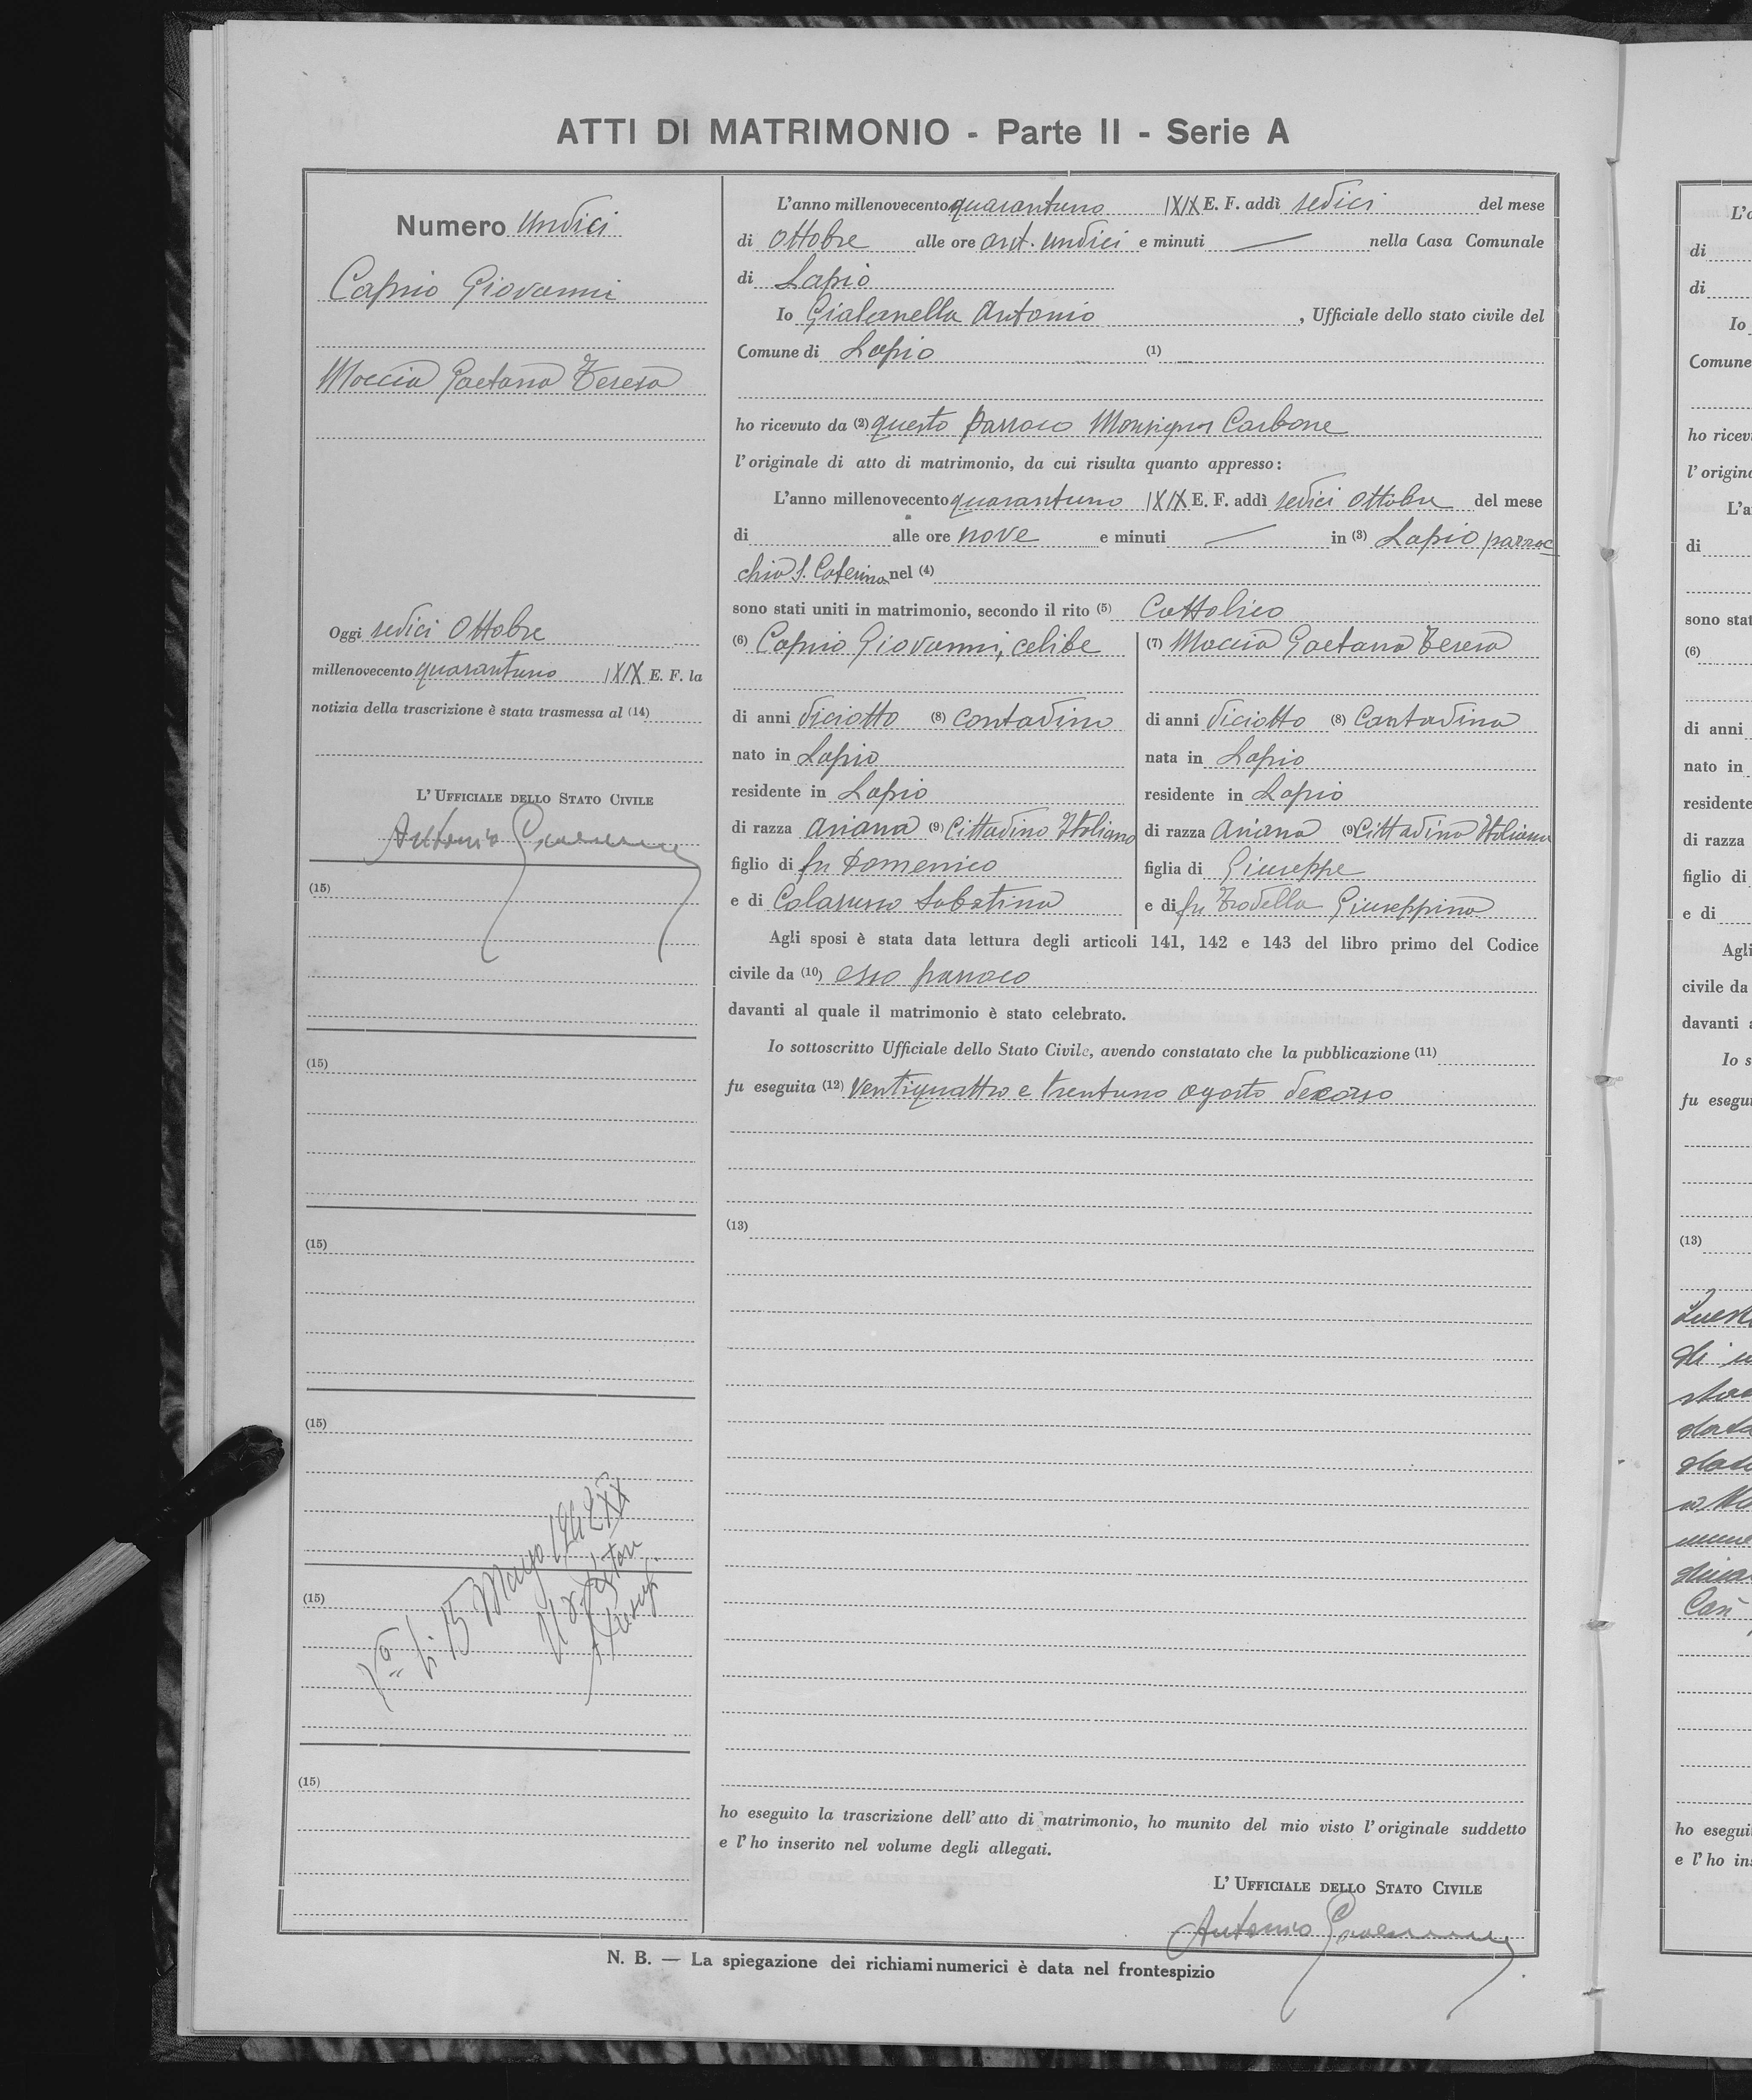 ATTI DI MATRIMONIO - Parte II - Serie A
Numero Undici
Caprio Giovanni
Moccia Gaetana Teresa
Oggi sedici Ottobre
millenovecento quarantuno IXIX E. F. la
notizia della trascrizione è stata trasmessa al (14)
L' UFFICIALE DELLO STATO CIVILE
Antonio
(15)
(15)
(15)
(15)
(15)
li 15 Maggio 1942 XX
(15)
L'anno millenovecento quarantuno IXIX E. F. addì sedici del mese
di Ottobre alle ore ant. undici e minuti — nella Casa Comunale
di Lapio
Io Gialanella Antonio , Ufficiale dello stato civile del
Comune di Lapio (1)
ho ricevuto da (2) questo Parroco Monsignor Carbone
l'originale di atto di matrimonio, da cui risulta quanto appresso:
L'anno millenovecento quarantuno IXIX E. F. addì sedici Ottobre del mese
di alle ore nove e minuti — in (3) Lapio parroc
chia S. Caterina nel (4)
sono stati uniti in matrimonio, secondo il rito (5) Cattolico
(6) Caprio Giovanni, celibe
di anni diciotto (8) contadino
nato in Lapio
residente in Lapio
di razza Ariana (9) Cittadino Italiano
figlio di fu Domenico
e di Colarusso Sabatina
(7) Moccia Gaetana Teresa
di anni diciotto (8) Contadina
nata in Lapio
residente in Lapio
di razza Ariana (9) Cittadina Italiana
figlia di Giuseppe
e di fu Trodella Giuseppina
Agli sposi è stata data lettura degli articoli 141, 142 e 143 del libro primo del Codice
civile da (10) esso parroco
davanti al quale il matrimonio è stato celebrato.
Io sottoscritto Ufficiale dello Stato Civile, avendo constatato che la pubblicazione (11)
fu eseguita (12) Ventiquattro e trentuno agosto decorso
(13)
ho eseguito la trascrizione dell'atto di matrimonio, ho munito del mio visto l'originale suddetto
e l'ho inserito nel volume degli allegati.
L' UFFICIALE DELLO STATO CIVILE
Antonio
N. B. — La spiegazione dei richiami numerici è data nel frontespizio
di
di
Io
Comune
di
(6)
di anni
nato in
residente
di razza
figlio di
e di
Agli
civile da
davanti
Io s
(13)